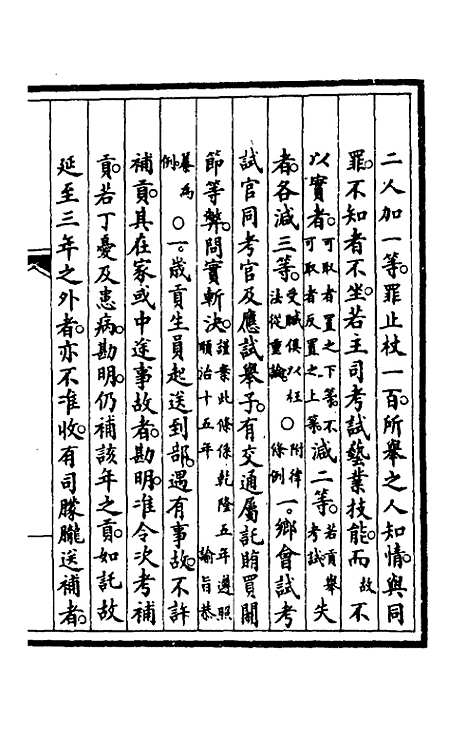 二人加一等。罪止杖一百。所舉之人知情。與同
罪。不知者不坐。若主司考試藝業技能。而故不
以實者。可取者置之下等。不可取者反置之上等。減二等。若貢舉考試失
者。各減三等。受贓俱以枉法從重論。○附律條例一。鄉會試考
試官同考官及應試舉子。有交通屬託賄買關
節等弊。問實斬決。謹案此條係乾隆五年遵照順治十五年諭旨恭
纂為例。○一。歲貢生員起送到部。遇有事故。不許
補貢。其在家或中途事故者。勘明。准令次考補
貢。若丁憂及患病。勘明。仍補該年之貢。如託故
延至三年之外者。亦不准收。有司朦朧送補者。